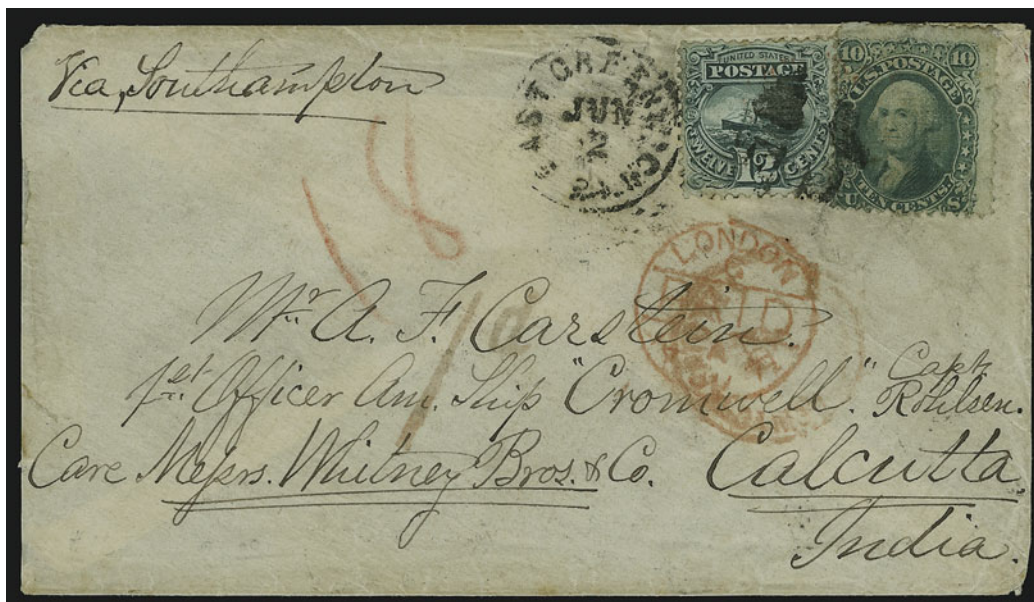 Via Southampton
JUN
2
UNITED STATES
POSTAGE
TWELVE 12 CENTS
10 10
U.S. POSTAGE
TEN CENTS
U. S.
18
LONDON
PAID
1d
Mr. A. F. Carstein.
1st Officer Am. Ship "Cromwell". Capt. Rohlsen.
Care Messrs. Whitney Bros. & Co. Calcutta,
India.